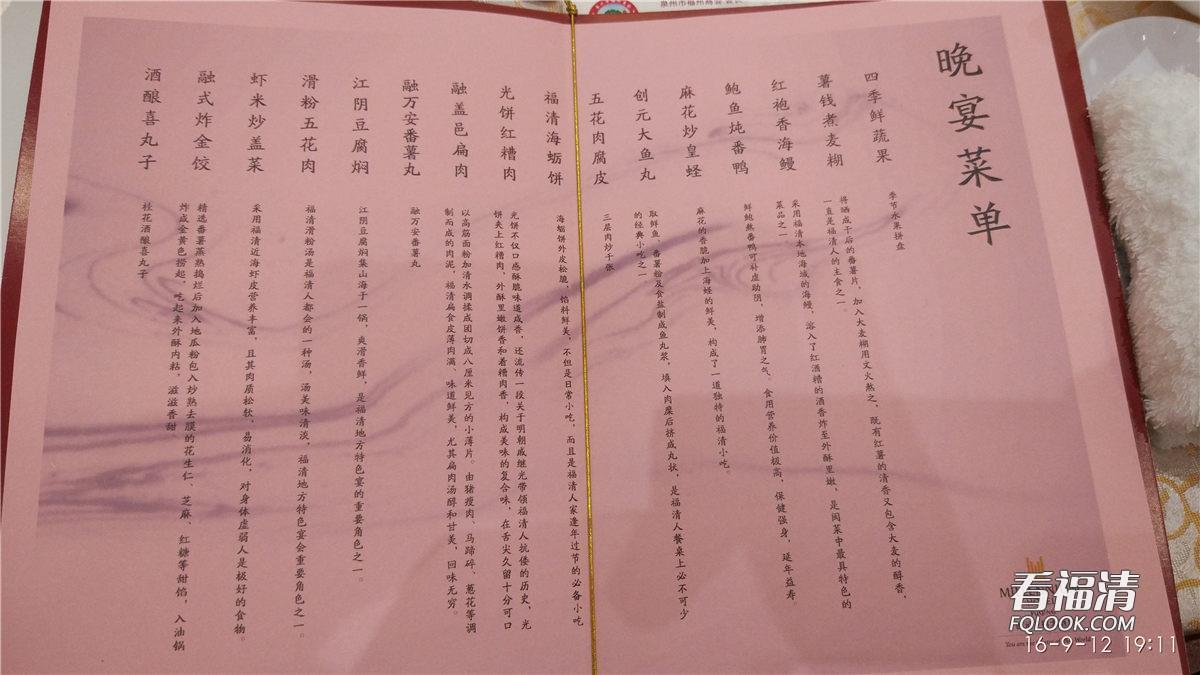 晚宴菜单
四季鲜蔬果
季节水果拼盘
薯钱煮麦糊
得晒成干后的番薯片，加入大麦糊用文火熬之，既有红薯的清香又包含大麦的醇香，
一直是福清人的主食之一。
红袍香海鳗
采用福清本地海域的海鳗，溶入了红酒糟的酒香炸至外酥里嫩，是闽菜中最具特色的
菜品之一。
鲍鱼炖番鸭
鲜鲍熬番鸭可补虚助阴，增添肺胃之气。食用营养价值极高，保健强身，延年益寿。
麻花炒皇蛏
麻花的香脆加上海蛏的鲜美，构成了一道独特的福清小吃。
创元大鱼丸
取鲜鱼、番薯粉及食盐制成鱼丸浆，填入肉糜后挤成丸状，是福清人餐桌上必不可少
的经典小吃之一
五花肉腐皮
三层肉炒千张
福清海蛎饼
海蛎饼外皮松脆，馅料鲜美，不但是日常小吃，而且是福清人家逢年过节的必备小吃
光饼红糟肉
光饼不仅口感酥脆味道咸香，还流传一段关于明朝戚继光带领福清人抗倭的历史，光
饼夹上红糟肉，外酥里嫩饼香和着糟肉香，构成美味的复合味，在舌尖久留十分可口
融盖邑扁肉
以高筋面粉加清水调揉成团切成八厘米见方的小薄片。由猪瘦肉、马蹄碎、葱花等调
制而成的肉泥，福清扁食皮薄肉满、味道鲜美，尤其扁肉汤醇和甘美，回味无穷。
融万安番薯丸
融万安番薯丸
江阴豆腐焖
江阴豆腐焖集山海于一锅，爽滑香鲜，是福清地方特色宴的重要角色之一。
滑粉五花肉
福清滑粉汤是福清人都会的一种汤，汤美味清淡，福清地方特色宴会重要角色之一。
虾米炒盖菜
采用福清近海虾皮营养丰富，且其肉质松软，易消化，对身体虚弱人是极好的食物。
融式炸金饺
精选番薯蒸熟捣烂后加入地瓜粉包入炒熟去膜的花生仁、芝麻、红糖等甜馅，入油锅
炸成金黄色捞起，吃起来外酥内粘，滋滋香甜。
酒酿喜丸子
桂花酒酿喜丸子
看福清
FQLOOK.COM
16-9-12 19:11